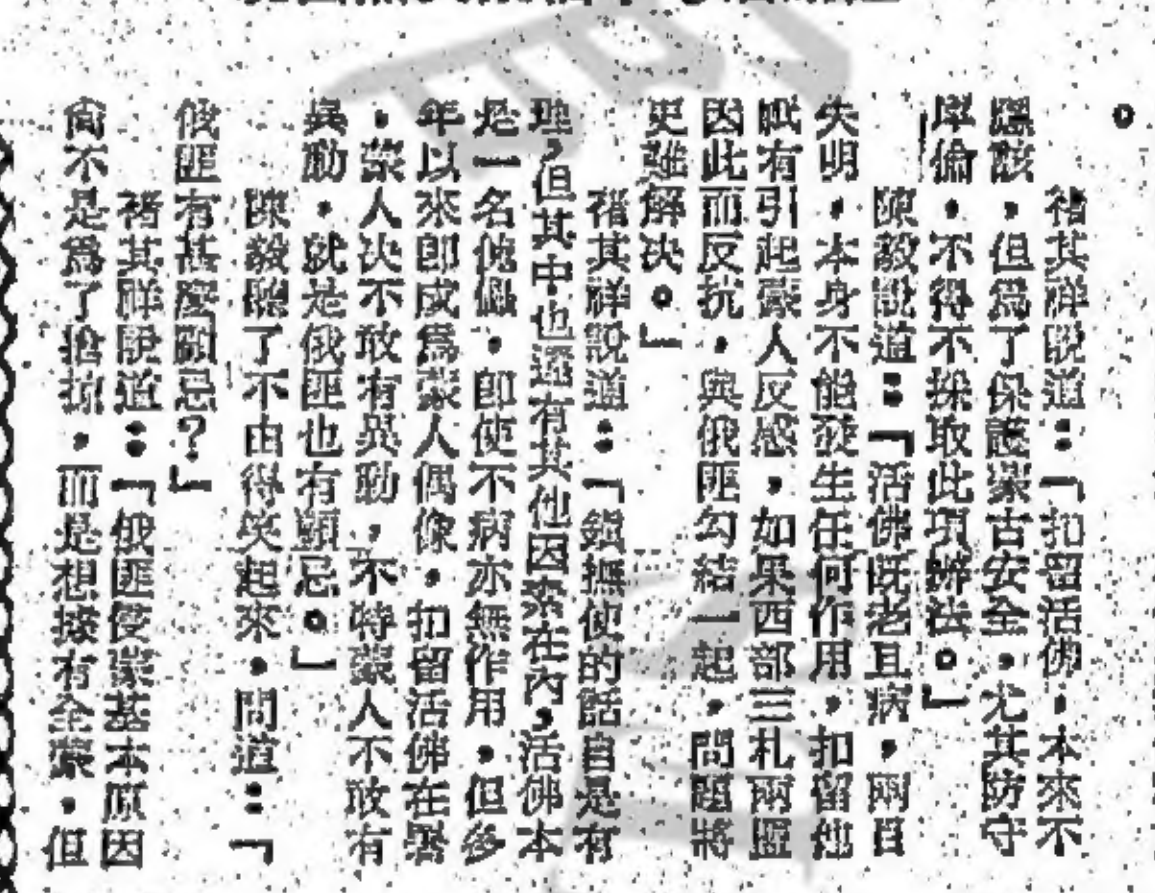 。
褚其祥說道：「扣留活佛，本來不
應該，但爲了保護蒙古安全，尤其防守
庫倫，不得不採取此項辦法。」
陳毅說道：「活佛既老且病，兩目
失明，本身不能發生任何作用，扣留他
祇有引起蒙人反感，如果西部三札兩盟
因此而反抗，與俄匪勾結一起，問題將
更難解决。」
褚其祥說道：「鎮撫使的話自是有
理，但其中也還有其他因素在內，活佛本
是一名傀儡，即使不病亦無作用，但多
年以來即成爲蒙人偶像，扣留活佛在署
，蒙人决不敢有異動，不特蒙人不敢有
異動，就是俄匪也有顧忌。」
陳毅聽了不由得笑起來，問道：「
俄匪有甚麼顧忌？」
褚其祥說道：「俄匪侵蒙基本原因
尙不是爲了搶掠，而是想據有全蒙，但